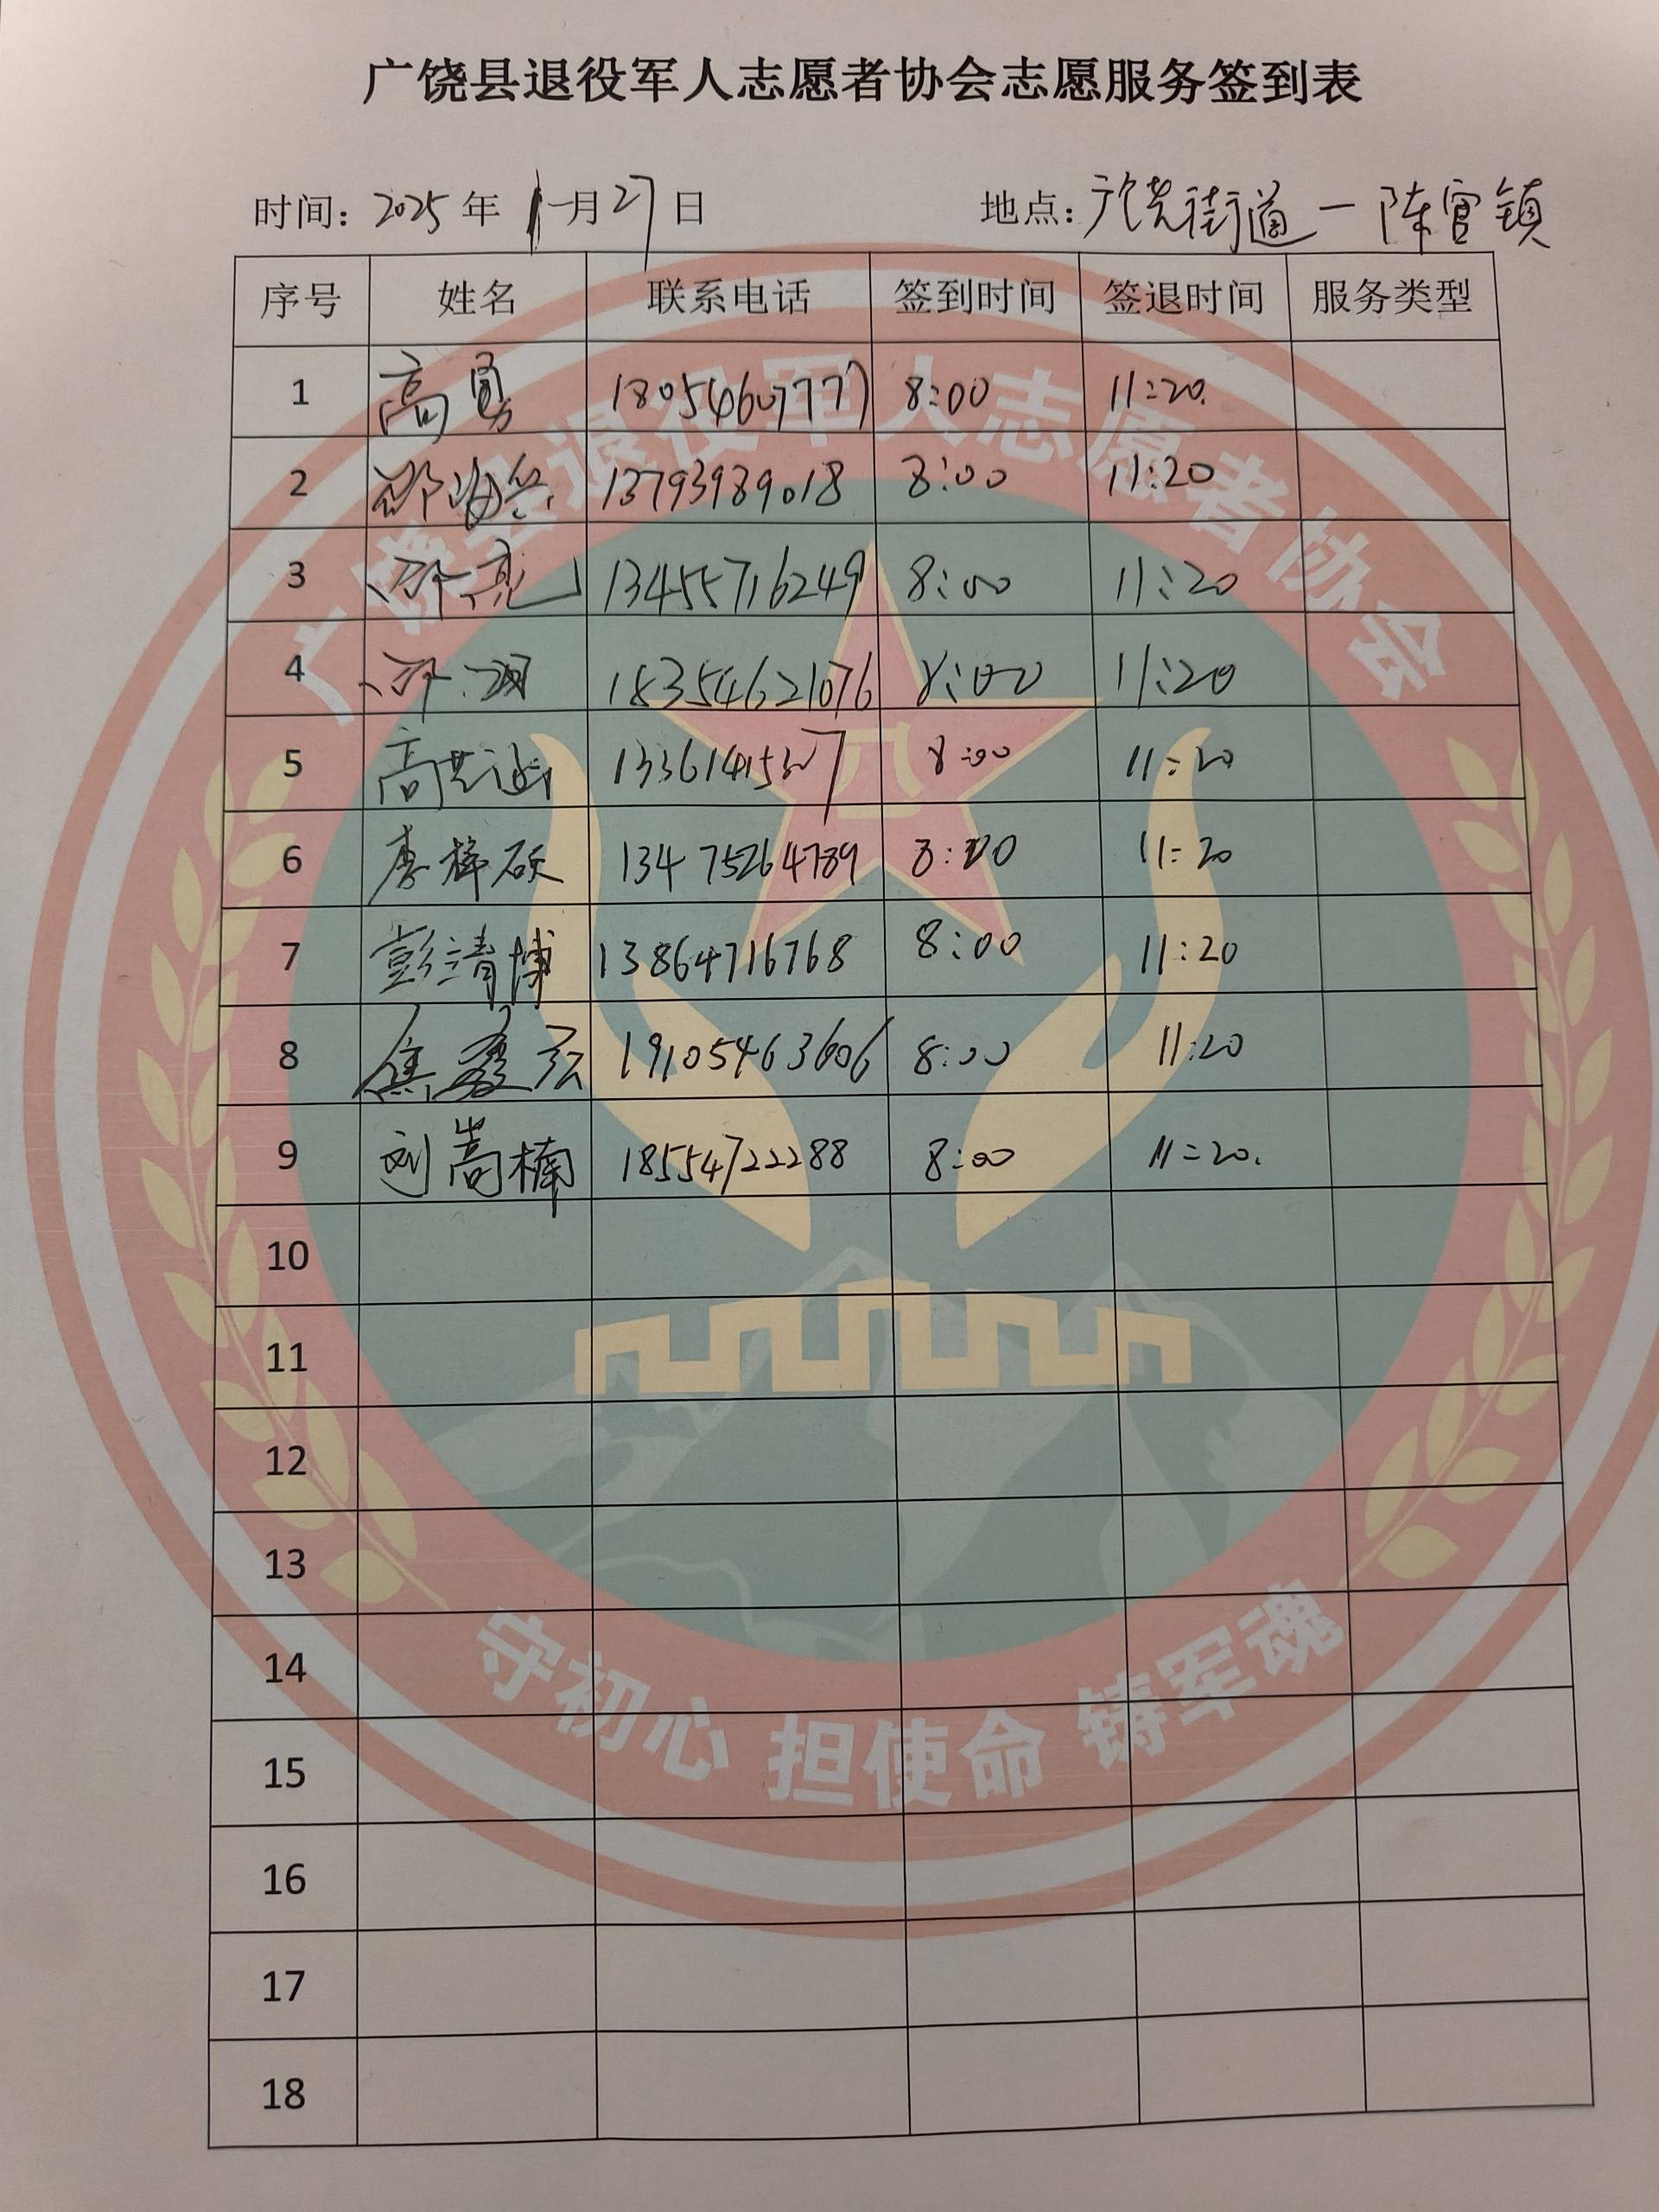 广饶县退役军人志愿者协会志愿服务签到表
时间: 2025 年 月 27 日 地点: 广饶街道一陈官镇
序号 姓名 联系电话 签到时间 签退时间 服务类型
1 高勇 18054607777 8:00 11:20.
2 13793989018 8:00 11:20
3 13455716249 8:00 11:20
4 18354621076 8:00 11:20
5 高 8:00 11:20
6 李梓硕 13475264789 8:00 11:20
7 彭清博 13864716768 8:00 11:20
8 焦 19105463606 8:00 11:20
9 刘嵩楠 18554722288 8:00 11:20.
10
11
12
13
14
15
16
17
18
广饶县退役军人志愿者协会
守初心 担使命 铸军魂